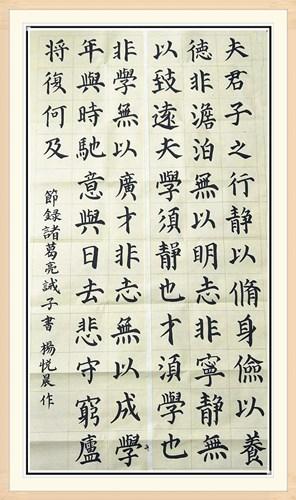 夫君子之行靜以脩身儉以養
德非澹泊無以明志非寧靜無
以致遠夫學須靜也才須學也
非學無以廣才非志無以成學
年與時馳意與日去悲守窮廬
將復何及
節錄諸葛亮誡子書 楊悅晨作